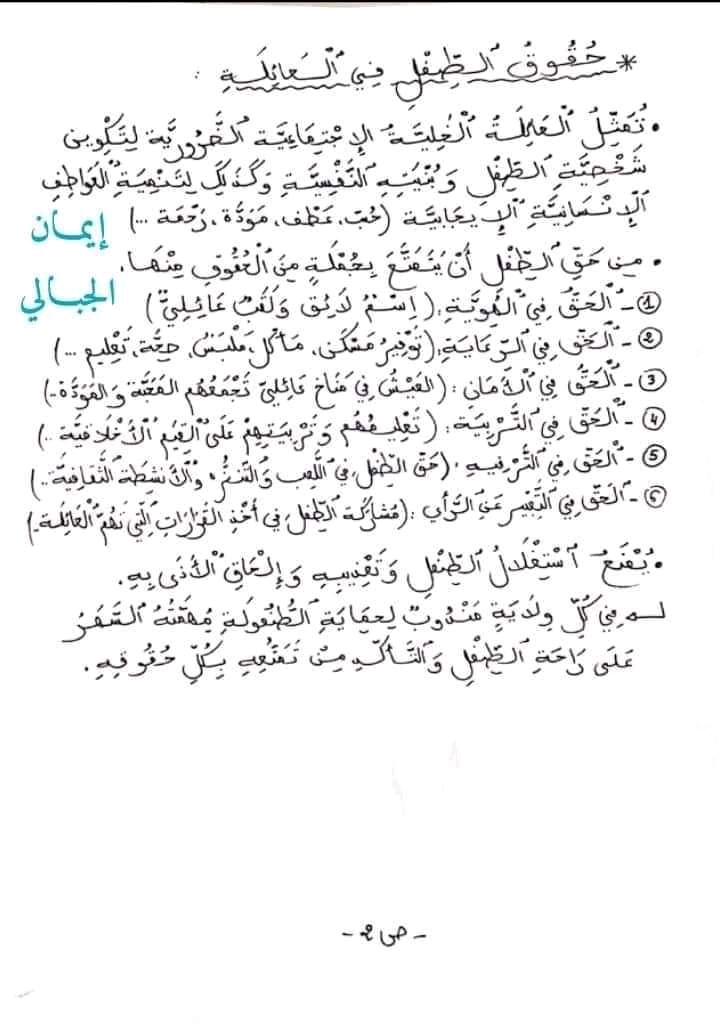 * حُقُوقُ الطِّفْلِ فِي الْعَائِلَةِ :
• تُمَثِّلُ الْعَائِلَةُ الْخَلِيَّةَ الْإِجْتِمَاعِيَّةَ الضَّرُورِيَّةَ لِتَكْوِينِ
شَخْصِيَّةِ الطِّفْلِ وَبُنْيَتِهِ النَّفْسِيَّةِ وَكَذَلِكَ لِتَنْمِيَةِ الْعَوَاطِفِ
الْإِنْسَانِيَّةِ الْإِيجَابِيَّةِ (حُبّ، عَطْف، مَوَدَّة، رَحْمَة ...)
إيمان
• مِنْ حَقِّ الطِّفْلِ أَنْ يَتَمَتَّعَ بِجُمْلَةٍ مِنَ الْحُقُوقِ مِنْهَا.
الجبالي
① - الْحَقُّ فِي الْهُوِيَّةِ: (اِسْمٌ لَائِق وَلَقَبٌ عَائِلِيٌّ)
② - الْحَقُّ فِي الرِّعَايَةِ: (تَوْفِيرُ مَسْكَن، مَأْكَل، مَلْبَسٌ، صِحَّة، تَعْلِيم ...)
③ - الْحَقُّ فِي الْأَمَانِ: (الْعَيْشُ فِي مَنَاخٍ عَائِلِيّ تَجْمَعُهُم الْمَحَبَّة وَالْمَوَدَّة..)
④ - الْحَقُّ فِي التَّرْبِيَةِ: (تَعْلِيمُهُم وَتَرْبِيَتِهِمْ عَلَى الْقِيَمِ الْأَخْلَاقِيَّة ..)
⑤ - الْحَقُّ فِي التَّرْفِيهِ: (حَقّ الطِّفْلِ فِي اللَّعِب وَالتَّنَزُّه وَالْأَنْشِطَة الثَّقَافِيَّة..)
⑥ - الْحَقُّ فِي التَّعْبِيرِ عَنِ الرَّأْيِ: (مُشَارَكَة الطِّفْلِ فِي أَخْذِ الْقَرَارَاتِ الَّتِي تَهُمّ الْعَائِلَة..)
• يُمْنَعُ اسْتِغْلَالُ الطِّفْلِ وَتَعْذِيبِهِ وَإِلْحَاقِ الْأَذَى بِهِ.
لـه فِي كُلِّ وِلَايَةٍ مَنْدُوبٌ لِحِمَايَةِ الطُّفُولَةِ مُهِمَّتُهُ السَّهَرُ
عَلَى رَاحَةِ الطِّفْلِ وَالتَّأَكُّدِ مِنْ تَمَتُّعِهِ بِكُلِّ حُقُوقِهِ.
- ص 2 -